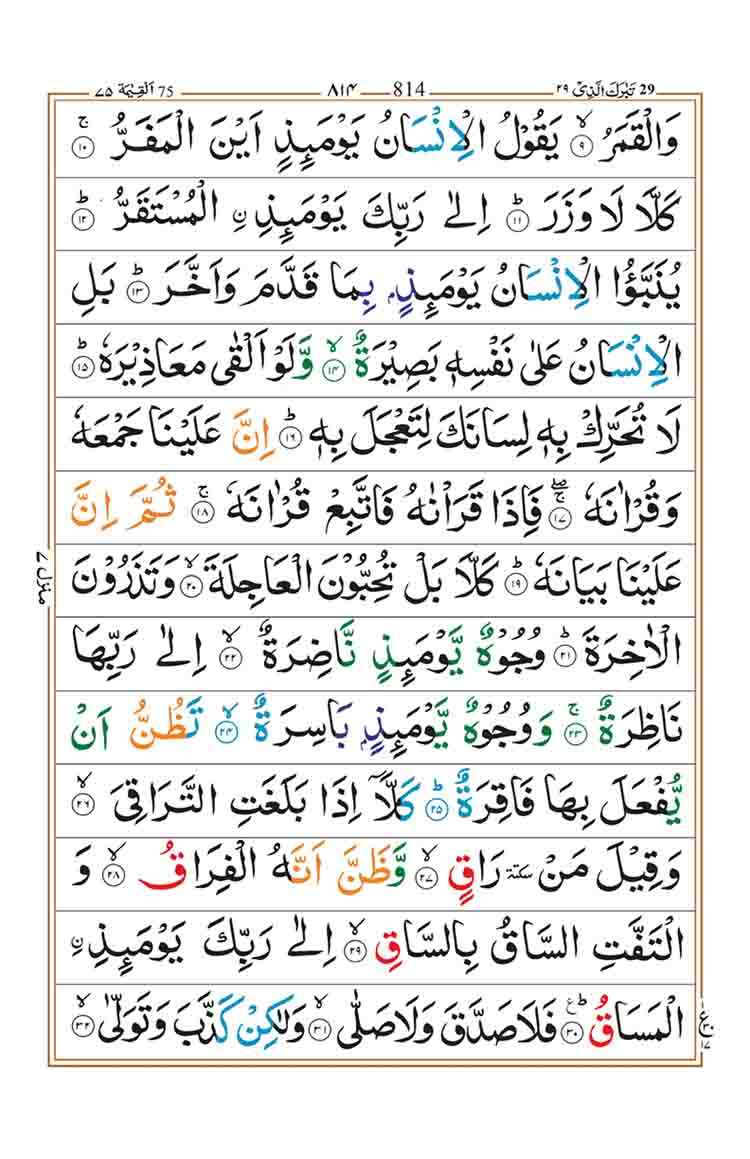 29 تَبٰرَكَ الَّذِىْ ۲۹ 814 ۸۱۴ 75 اَلْقِيٰمَة ۷۵
وَالْقَمَرُ ۙ‏﴿۹﴾ يَقُوْلُ الْاِنْسَانُ يَوْمَئِذٍ اَيْنَ الْمَفَرُّ ۚ‏﴿۱۰﴾
كَلَّا لَا وَزَرَ ؕ‏﴿۱۱﴾ اِلٰى رَبِّكَ يَوْمَئِذِ ۨ الْمُسْتَقَرُّ ؕ‏﴿۱۲﴾
يُنَبَّؤُا الْاِنْسَانُ يَوْمَئِذٍۭ بِمَا قَدَّمَ وَاَخَّرَ ؕ‏﴿۱۳﴾ بَلِ
الْاِنْسَانُ عَلٰى نَفْسِهٖ بَصِيْرَةٌ ۙ‏﴿۱۴﴾ وَّلَوْ اَلْقٰى مَعَاذِيْرَهٗ ؕ‏﴿۱۵﴾
لَا تُحَرِّكْ بِهٖ لِسَانَكَ لِتَعْجَلَ بِهٖ ؕ‏﴿۱۶﴾ اِنَّ عَلَيْنَا جَمْعَهٗ
وَقُرْاٰنَهٗ ۚۖ‏﴿۱۷﴾ فَاِذَا قَرَاْنٰهُ فَاتَّبِعْ قُرْاٰنَهٗ ۚ‏﴿۱۸﴾ ثُمَّ اِنَّ
عَلَيْنَا بَيَانَهٗ ؕ‏﴿۱۹﴾ كَلَّا بَلْ تُحِبُّوْنَ الْعَاجِلَةَ ۙ‏﴿۲۰﴾ وَتَذَرُوْنَ
الْاٰخِرَةَ ؕ‏﴿۲۱﴾ وُجُوْهٌ يَّوْمَئِذٍ نَّاضِرَةٌ ۙ‏﴿۲۲﴾ اِلٰى رَبِّهَا
نَاظِرَةٌ ۚ‏﴿۲۳﴾ وَوُجُوْهٌ يَّوْمَئِذٍۭ بَاسِرَةٌ ۙ‏﴿۲۴﴾ تَظُنُّ اَنْ
يُّفْعَلَ بِهَا فَاقِرَةٌ ؕ‏﴿۲۵﴾ كَلَّاۤ اِذَا بَلَغَتِ التَّرَاقِىَ ۙ‏﴿۲۶﴾
وَقِيْلَ مَنْ سكتة رَاقٍ ۙ‏﴿۲۷﴾ وَّظَنَّ اَنَّهُ الْفِرَاقُ ۙ‏﴿۲۸﴾ وَ
الْتَفَّتِ السَّاقُ بِالسَّاقِ ۙ‏﴿۲۹﴾ اِلٰى رَبِّكَ يَوْمَئِذِ ۨ
الْمَسَاقُ ؕ‏﴿۳۰﴾ ع فَلَا صَدَّقَ وَلَا صَلّٰى ۙ‏﴿۳۱﴾ وَلٰكِنْ كَذَّبَ وَتَوَلّٰى ۙ‏﴿۳۲﴾
منزل ۷
ع ۱۷